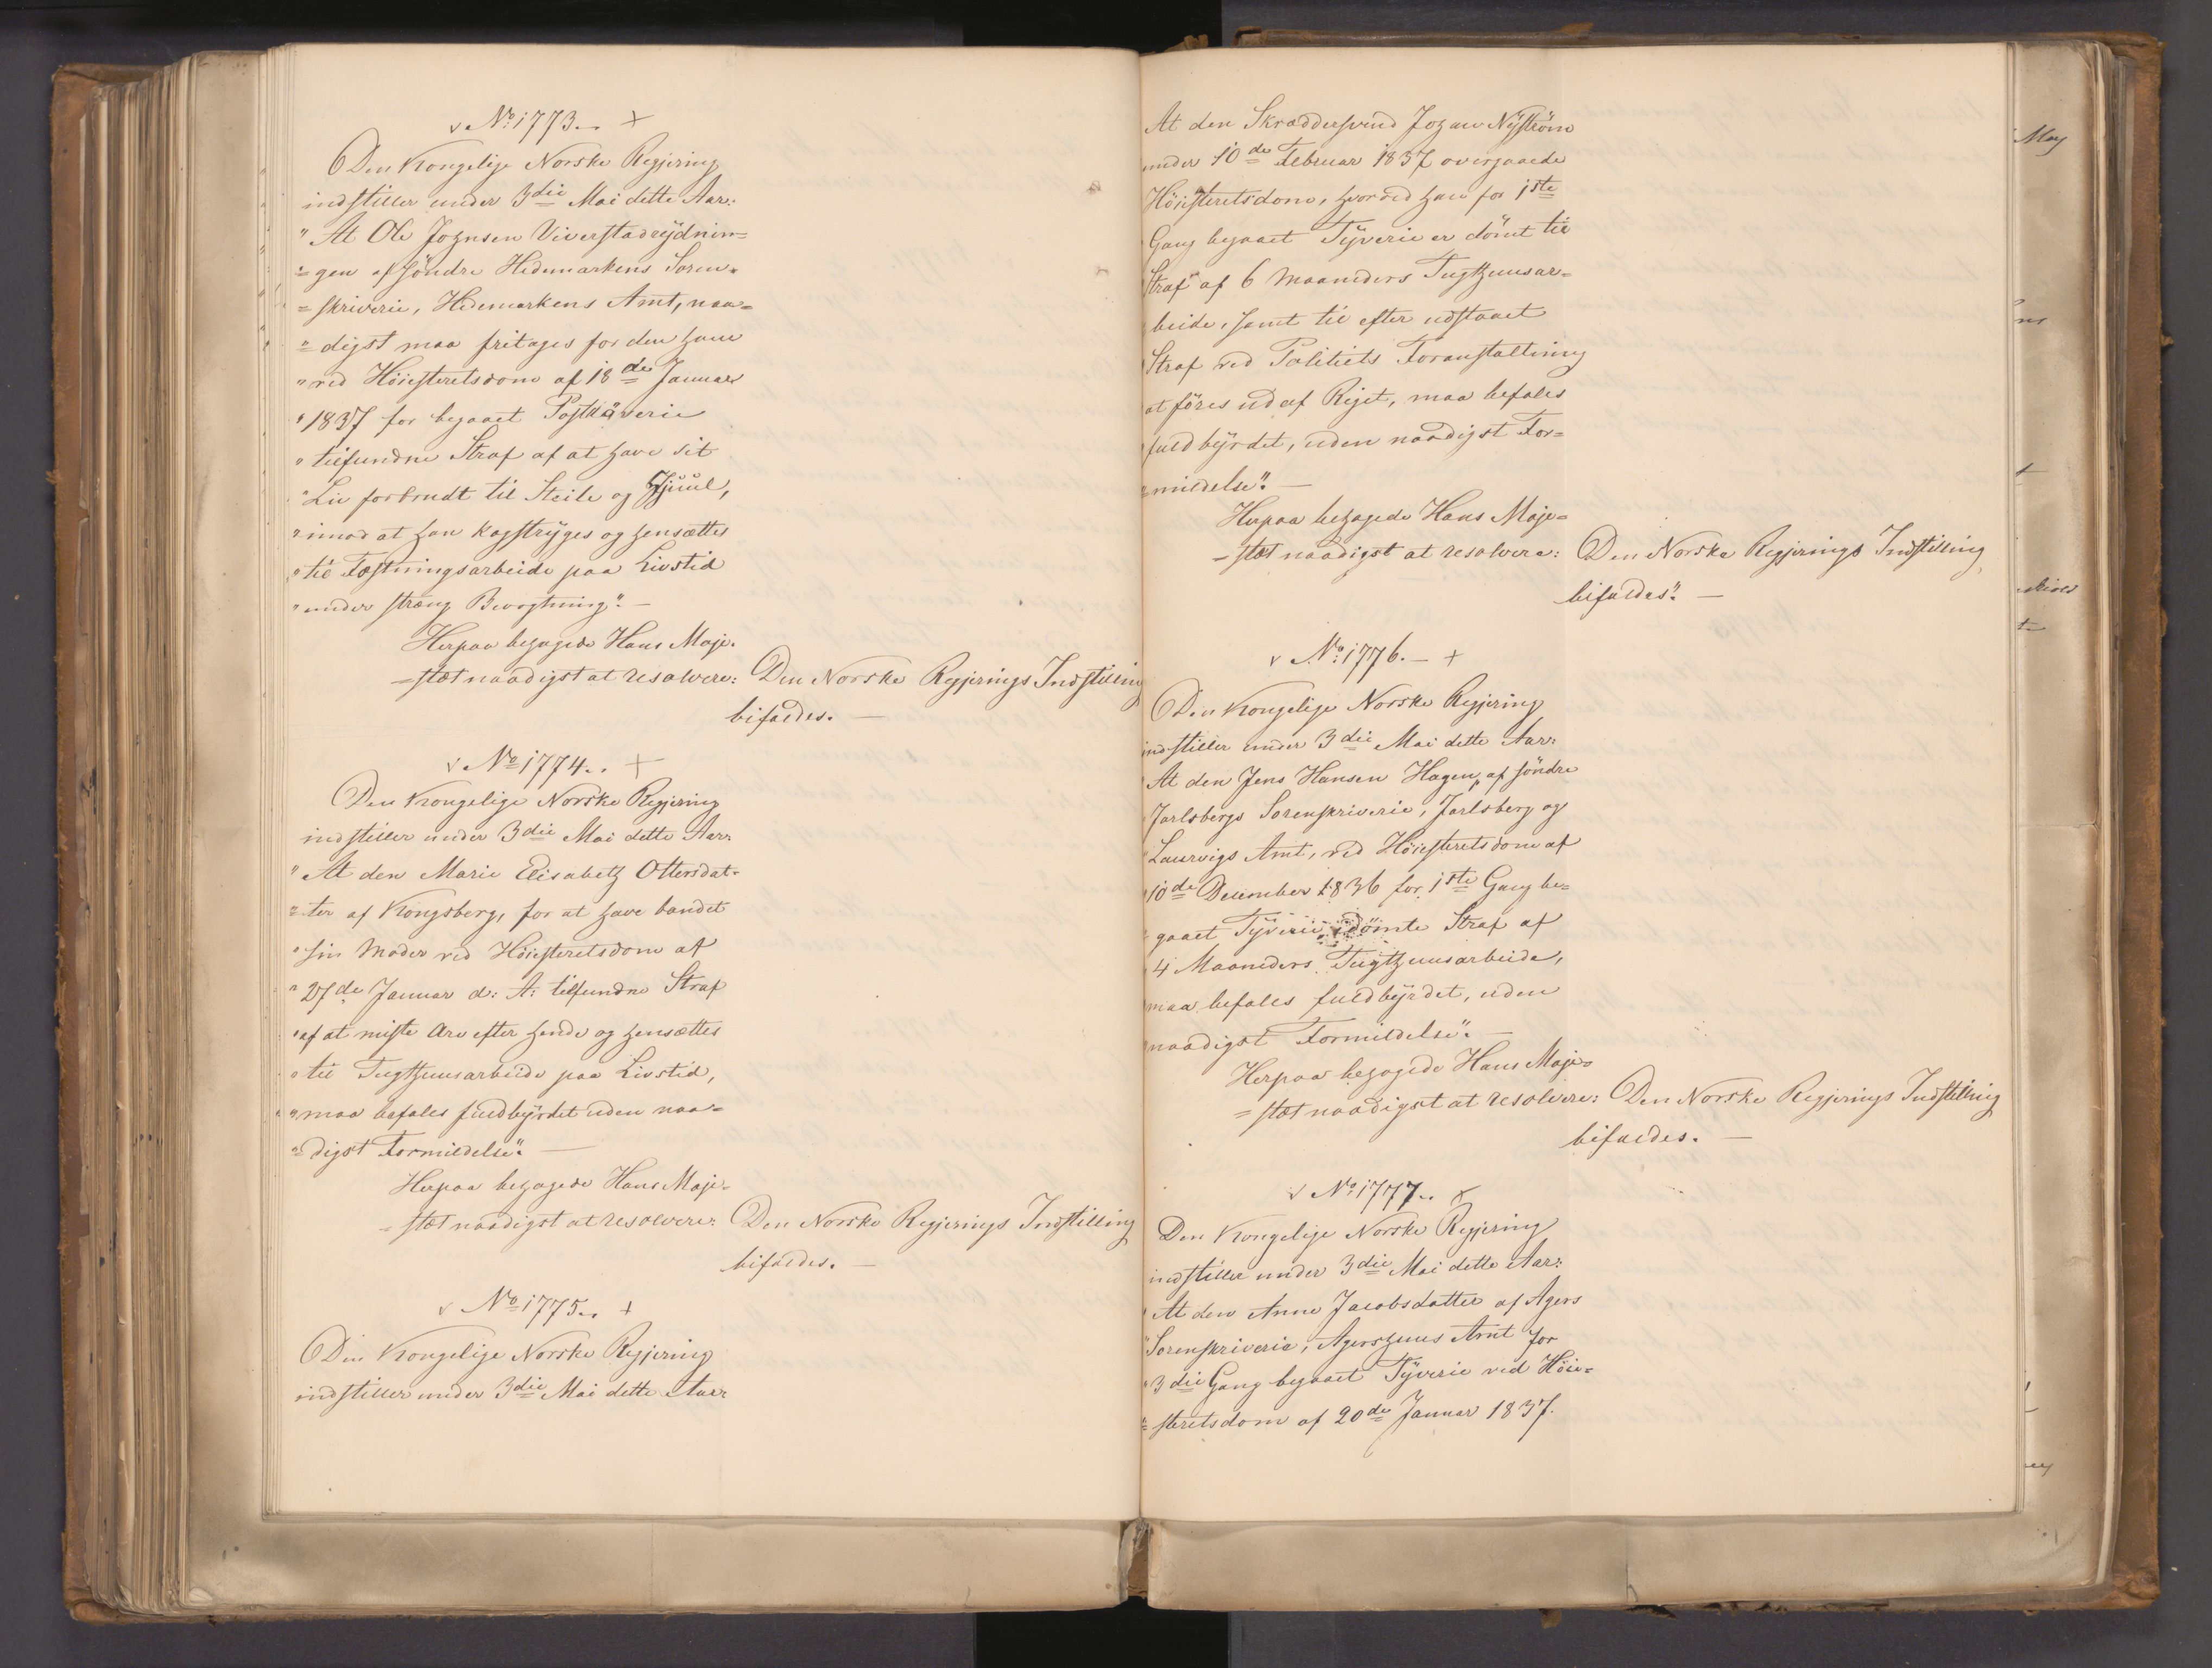 v No 1773. +
Den Kongelige Norske Regjering
indstiller under 3die Mai dette Aar:
"At Ole Johnsen Viverstadrydnin=
=gen af söndre Hedemarkens Soren=
=skriverie, Hedemarkens Amt, naa=
=digst maa fritages for den ham
"ved Höiesteretsdom af 18de Januar
"1837 for begaaet Posttÿverie
"tilfundne Straf af at have sit
"Liv forbrudt til Steile og Hjuul,
"imod at han kagstrÿges og hensættes
"til Fæstningsarbeide paa Livstid
"under stræng Bevogtning". —
Herpaa behagede Hans Maje=
=stæt naadigst at resolvere: Den Norske Regjerings Indstilling
bifaldes. —
v No 1774. +
Den Kongelige Norske Regjering
indstiller under 3die Mai dette Aar:
"At den Marie Elisabeth Ottersdat=
=ter af Kongsberg, for at have bandet
"sin Moder ved Höiesteretsdom af
"27de Januar d: A: tilfundne Straf
"af at miste Arv efter hende og hensættes
"til Tugthuusarbeide paa Livstid,
"maa befales fuldbÿrdet uden naa=
=digst Formildelse". —
Herpaa behagede Hans Maje=
=stæt naadigst at resolvere: Den Norske Regjerings Indstilling
bifaldes. —
v No 1775. +
Den Kongelige Norske Regjering
indstiller under 3die Mai dette Aar:
At den Skræddersvend Johan Nÿström
under 10de Februar 1837 overgaaede
Höiesteretsdom, hvorved han for 1ste
Gang begaaet Tÿverie er dömt til
Straf af 6 Maaneders Tugthuusar=
beide, samt til efter udstaaet
Straf ved Politiets Foranstaltning
at föres ud af Riget, maa befales
fuldbÿrdet, uden naadigst For=
=mildelse". —
Herpaa behagede Hans Maje=
=stæt naadigst at resolvere: Den Norske Regjerings Indstilling
bifaldes". —
v No 1776. — +
Den Kongelige Norske Regjering
indstiller under 3die Mai dette Aar:
At den Jens Hansen Hagen, af söndre
Jarlsbergs Sorenskriverie, Jarlsberg og
"Laurvigs Amt, ved Höiesteretsdom af
"10de December 1836 for 1ste Gang be=
=gaaet Tÿverie idömte Straf af
4 Maaneders Tugthuusarbeide,
maa befales fuldbÿrdet, uden
naadigst Formildelse". —
Herpaa behagede Hans Maje=
=stæt naadigst at resolvere: Den Norske Regjerings Indstilling
bifaldes. —
v No 1777. +
Den Kongelige Norske Regjering
indstiller under 3die Mai dette Aar:
"At den Anne Jacobsdatter af Agers
"Sorenskriverie, Agershuus Amt for
"3die Gang begaaet Tÿverie ved Höie=
=steretsdom af 20de Januar 1837.
May